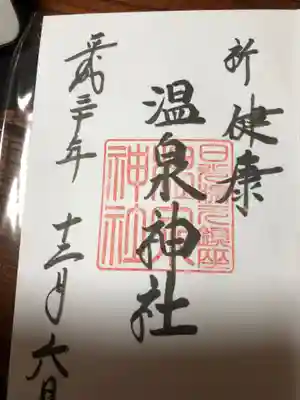 祈健康
温泉神社
平成三十年
十二月六日
温泉神社